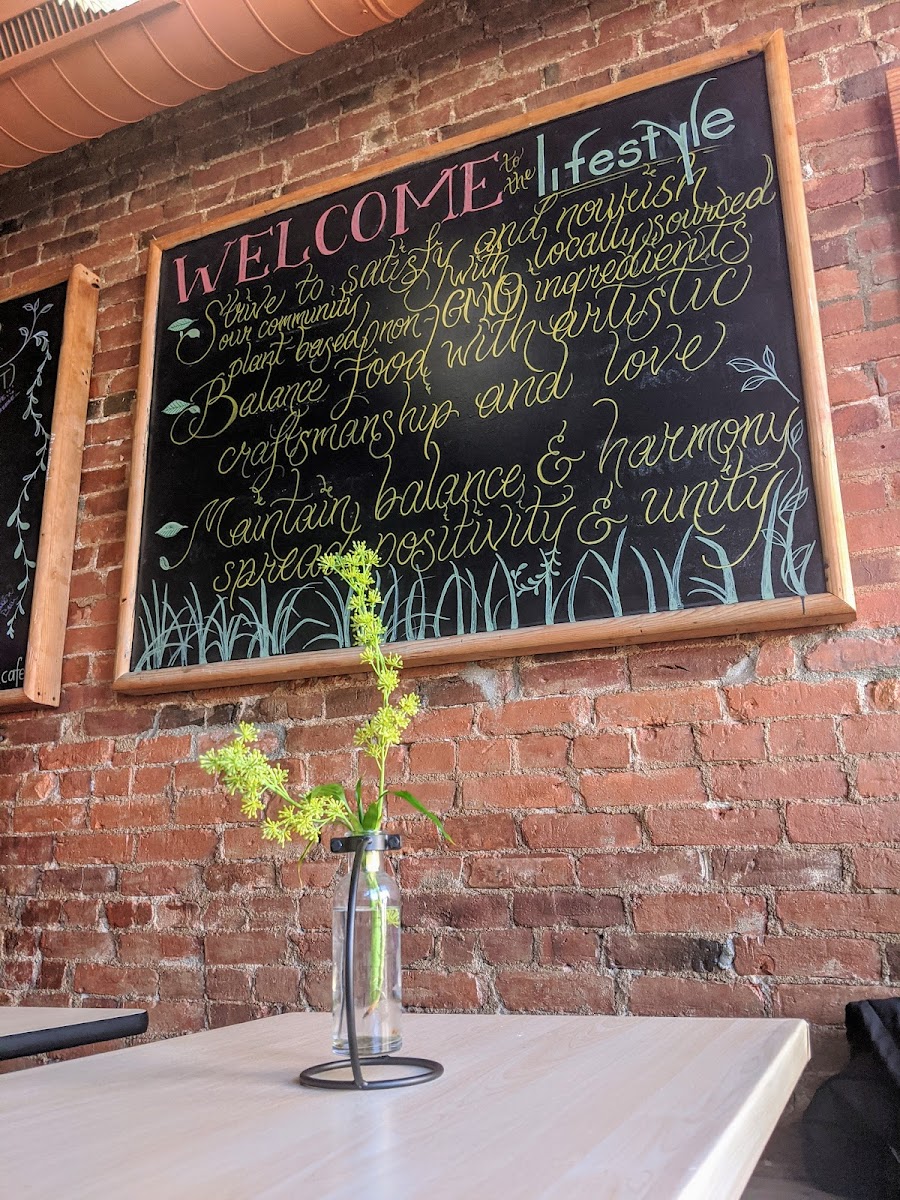 WELCOME to the lifestyle
Strive to satisfy and nourish
our community with locally sourced
plant based, non-GMO ingredients
Balance food with artistic
craftsmanship and love
Maintain balance & harmony
spread positivity & unity
cafe